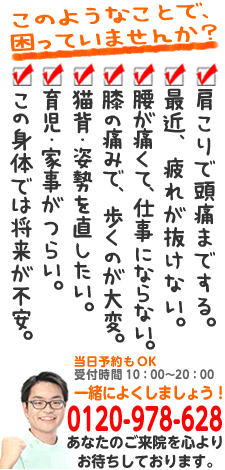 このようなことで、
困っていませんか？
肩こりで頭痛までする。
最近、疲れが抜けない。
腰が痛くて、仕事にならない。
膝の痛みで、歩くのが大変。
猫背・姿勢を直したい。
育児・家事がつらい。
この身体では将来が不安。
当日予約もOK
受付時間 10：00〜20：00
一緒によくしましょう！
0120-978-628
あなたのご来院を心より
お待ちしております。